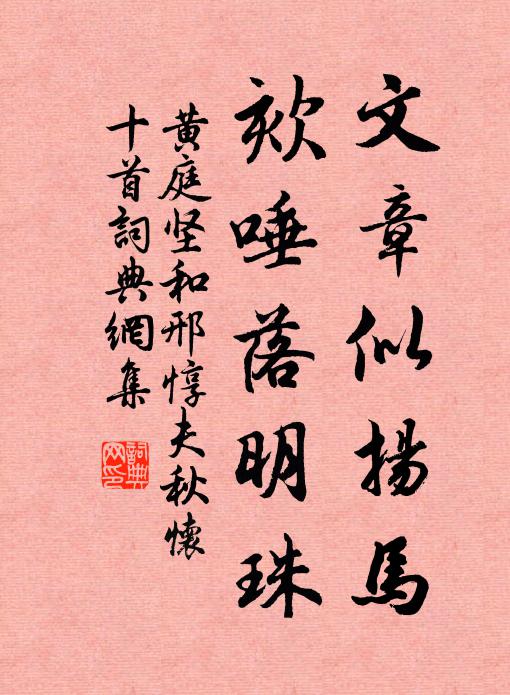 文章似揚馬
欬唾落明珠
黃庭坚和邢惇夫秋懷
十首詞典網集
詞典网印